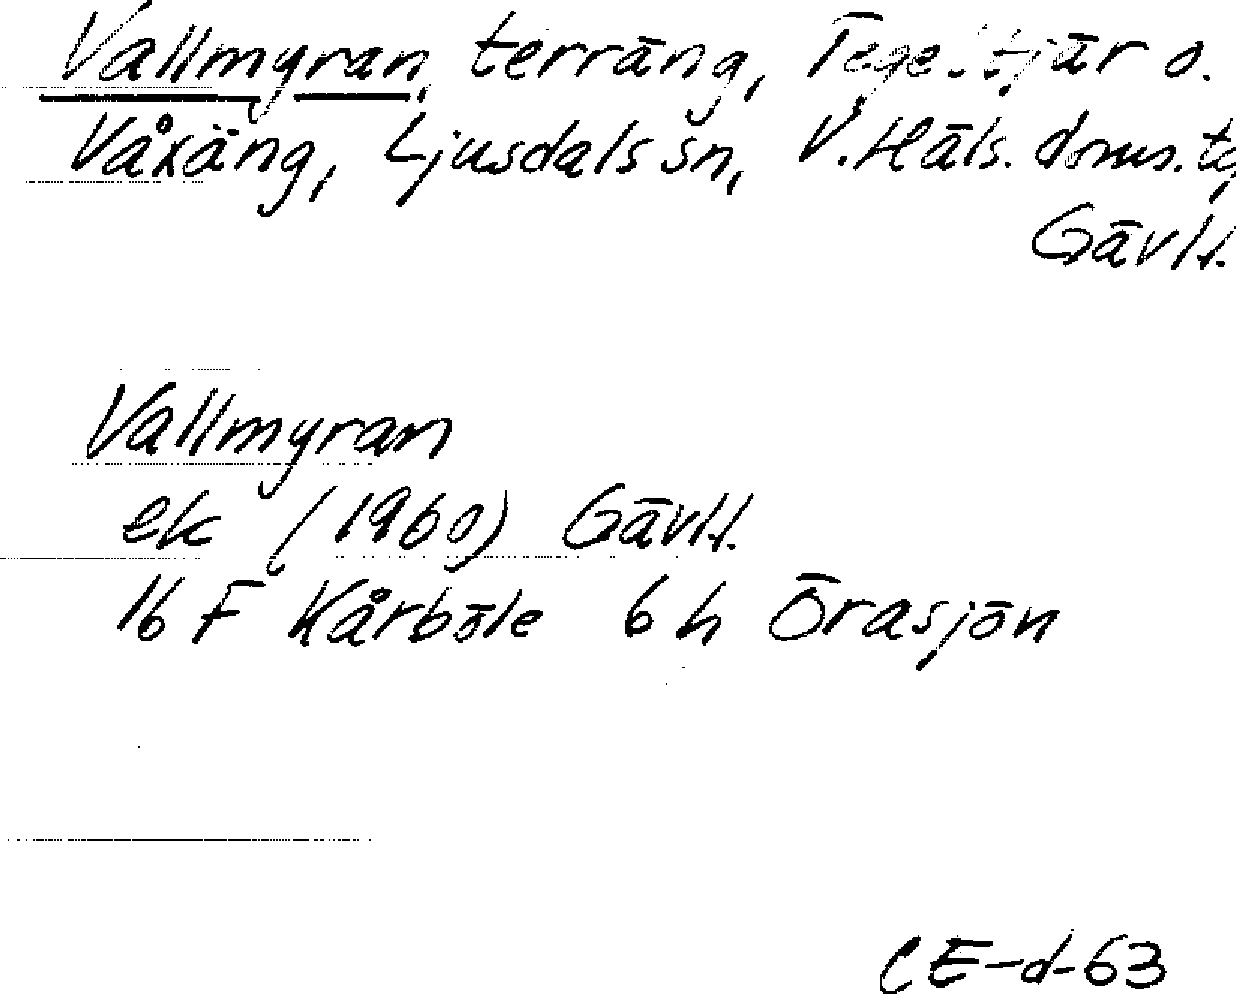 Vallmyran, terräng, o.
Våxäng, Ljusdals sn, V. Häls. doms. te,
Gävlt.
Vallmyran
ek (1960) Gävlt.
16 F Kårböle 6 h Örasjön
CE-d-63